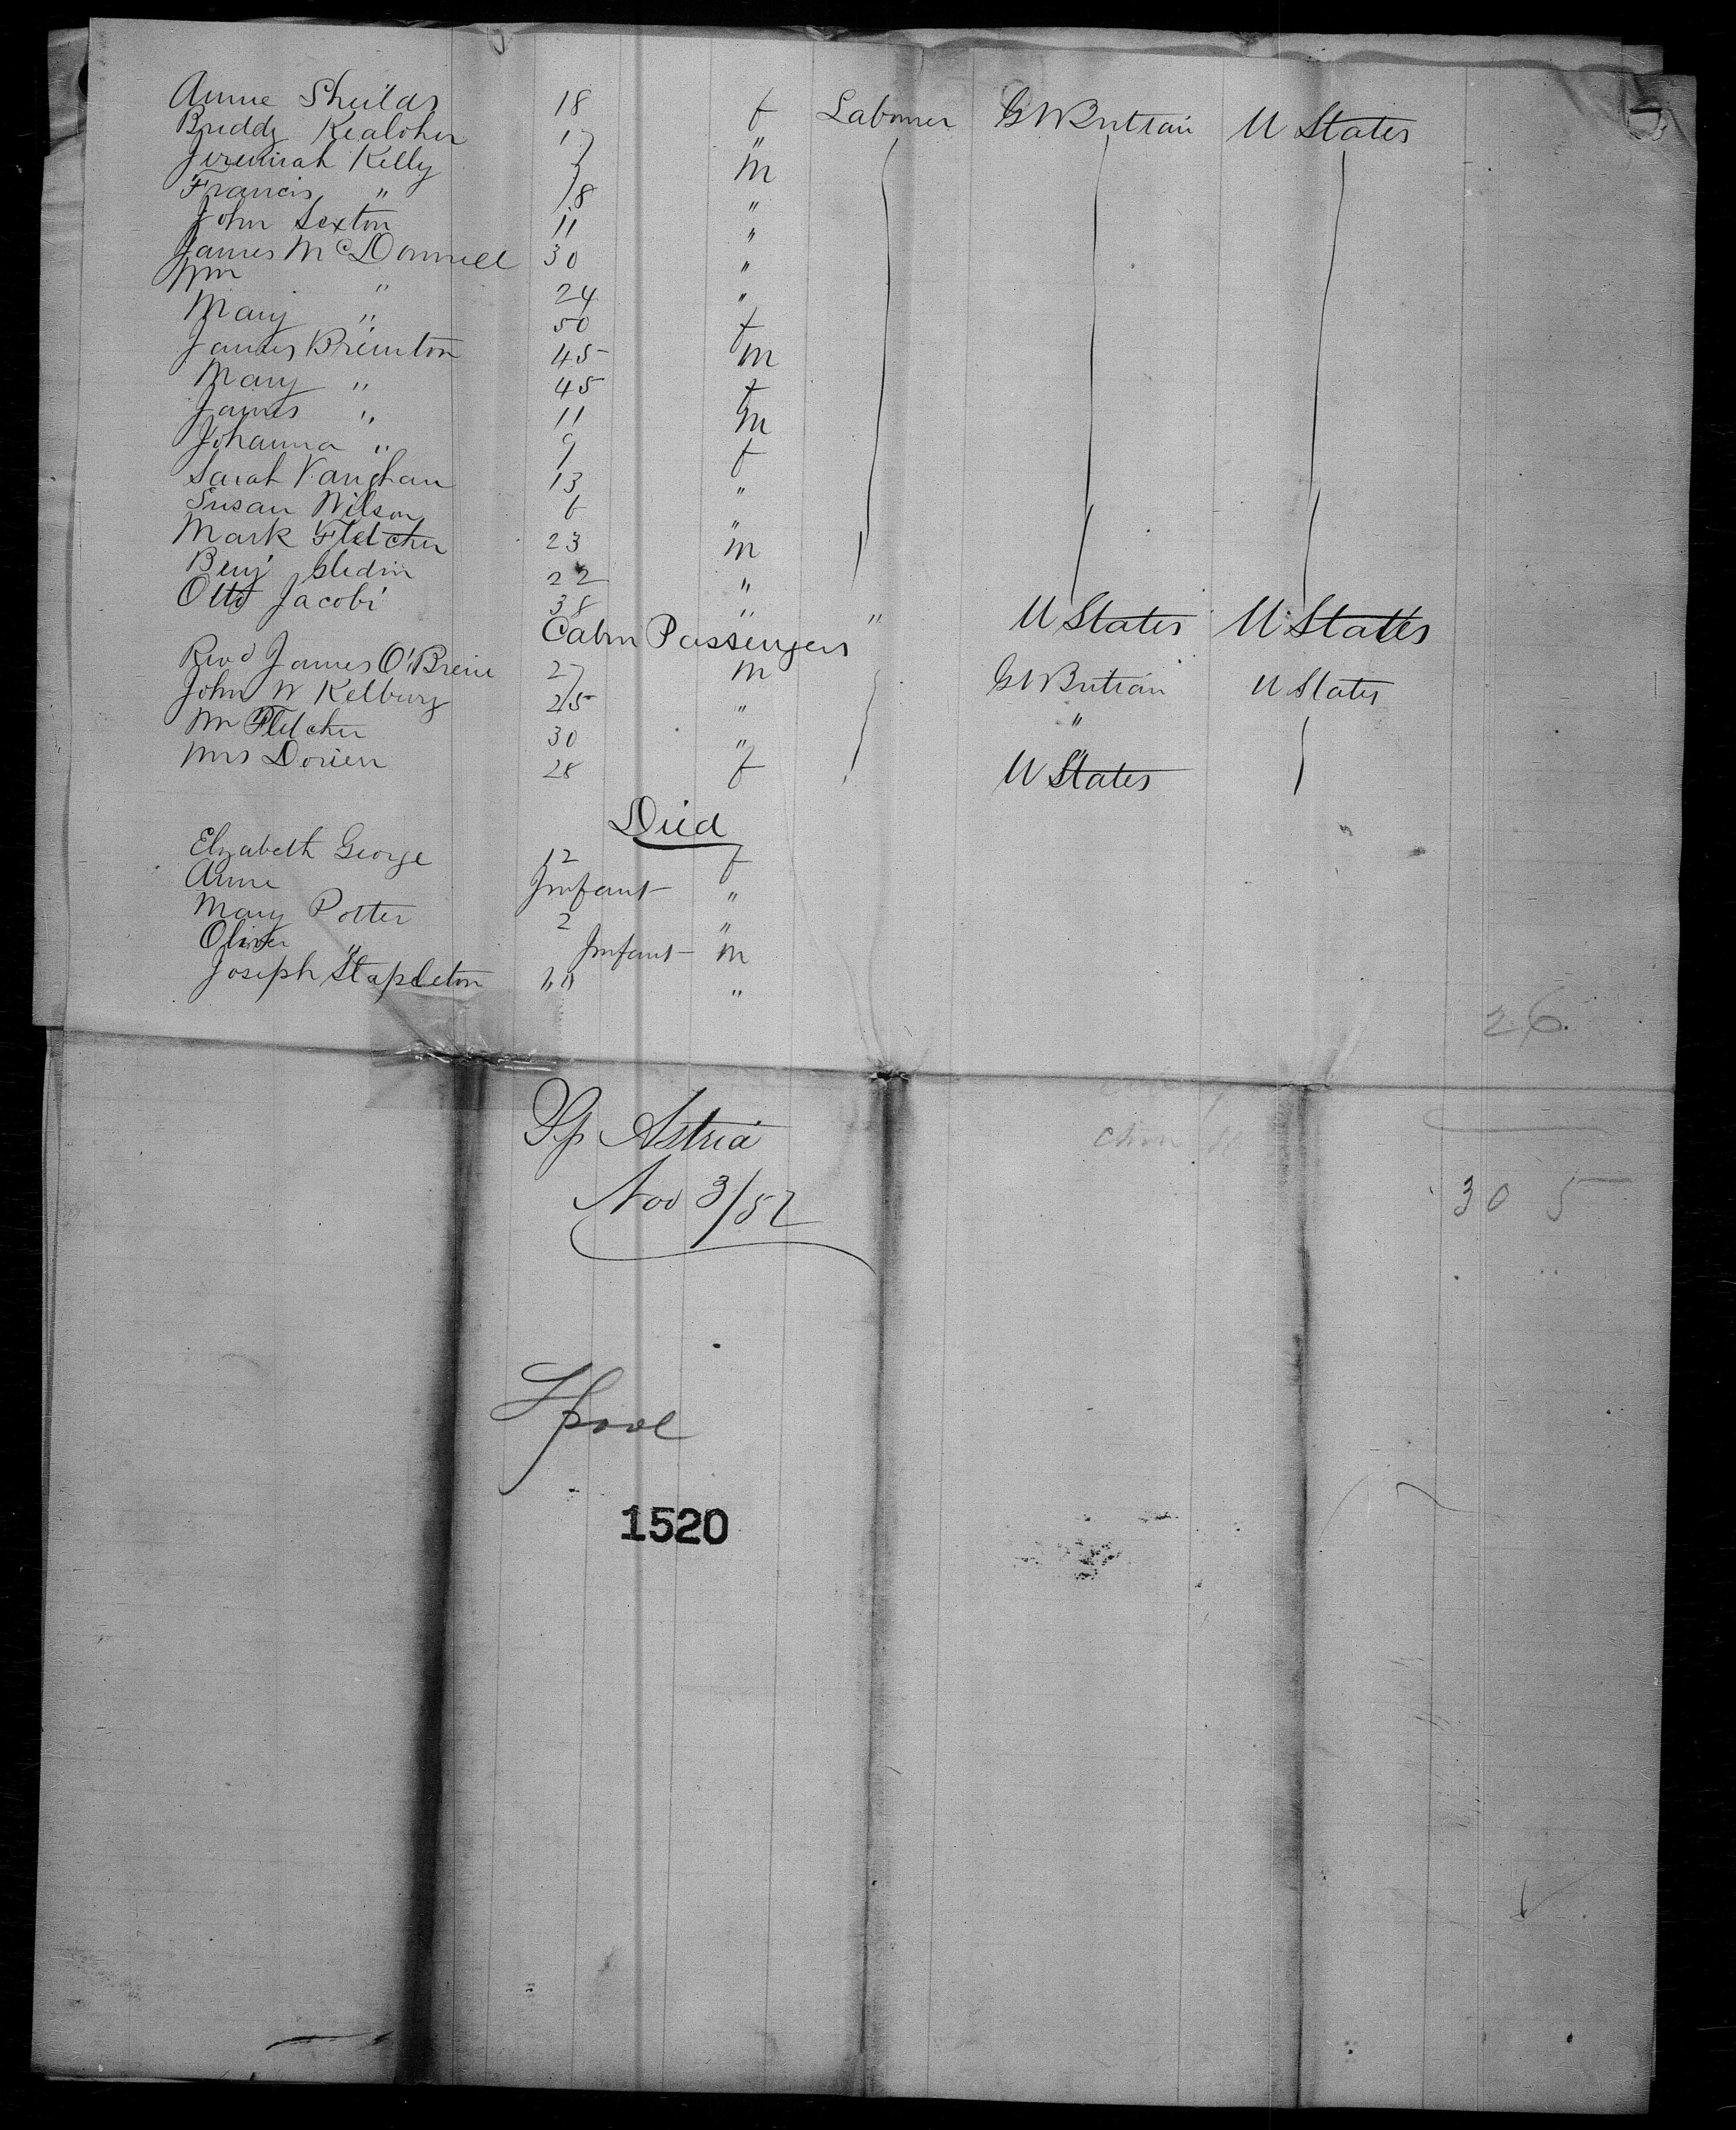 Anne Sheilds 18 f Labourer Gt Britain U States
Briddy Kealoher 17 "
Jeremiah Kelly 7 m
Francis " 18 "
John Sexton 11 "
James McDonnell 30 "
Wm " 24 "
Mary " 50 f
James Breinton 45 m
Mary " 45 f
James " 11 m
Johanna " 9 f
Sarah Vaughan 13 "
Susan Wilson 6 "
Mark Fletcher 23 m
Benj Gledin 22 "
Otto Jacobi 38 " " U States U States
Cabin Passengers
Revd James O'Brein 27 m Gt Britain U States
John W Kelburg 25 " "
Mr Fletcher 30 " "
Mrs Dorien 28 f U States
Died
Elizabeth George 12 f
Anne Infant "
Mary Potter 2 "
Oliver " Infant m
Joseph Stapleton " "
26.
Sp Astria
Nov 3/57
30 5
Lpool
1520